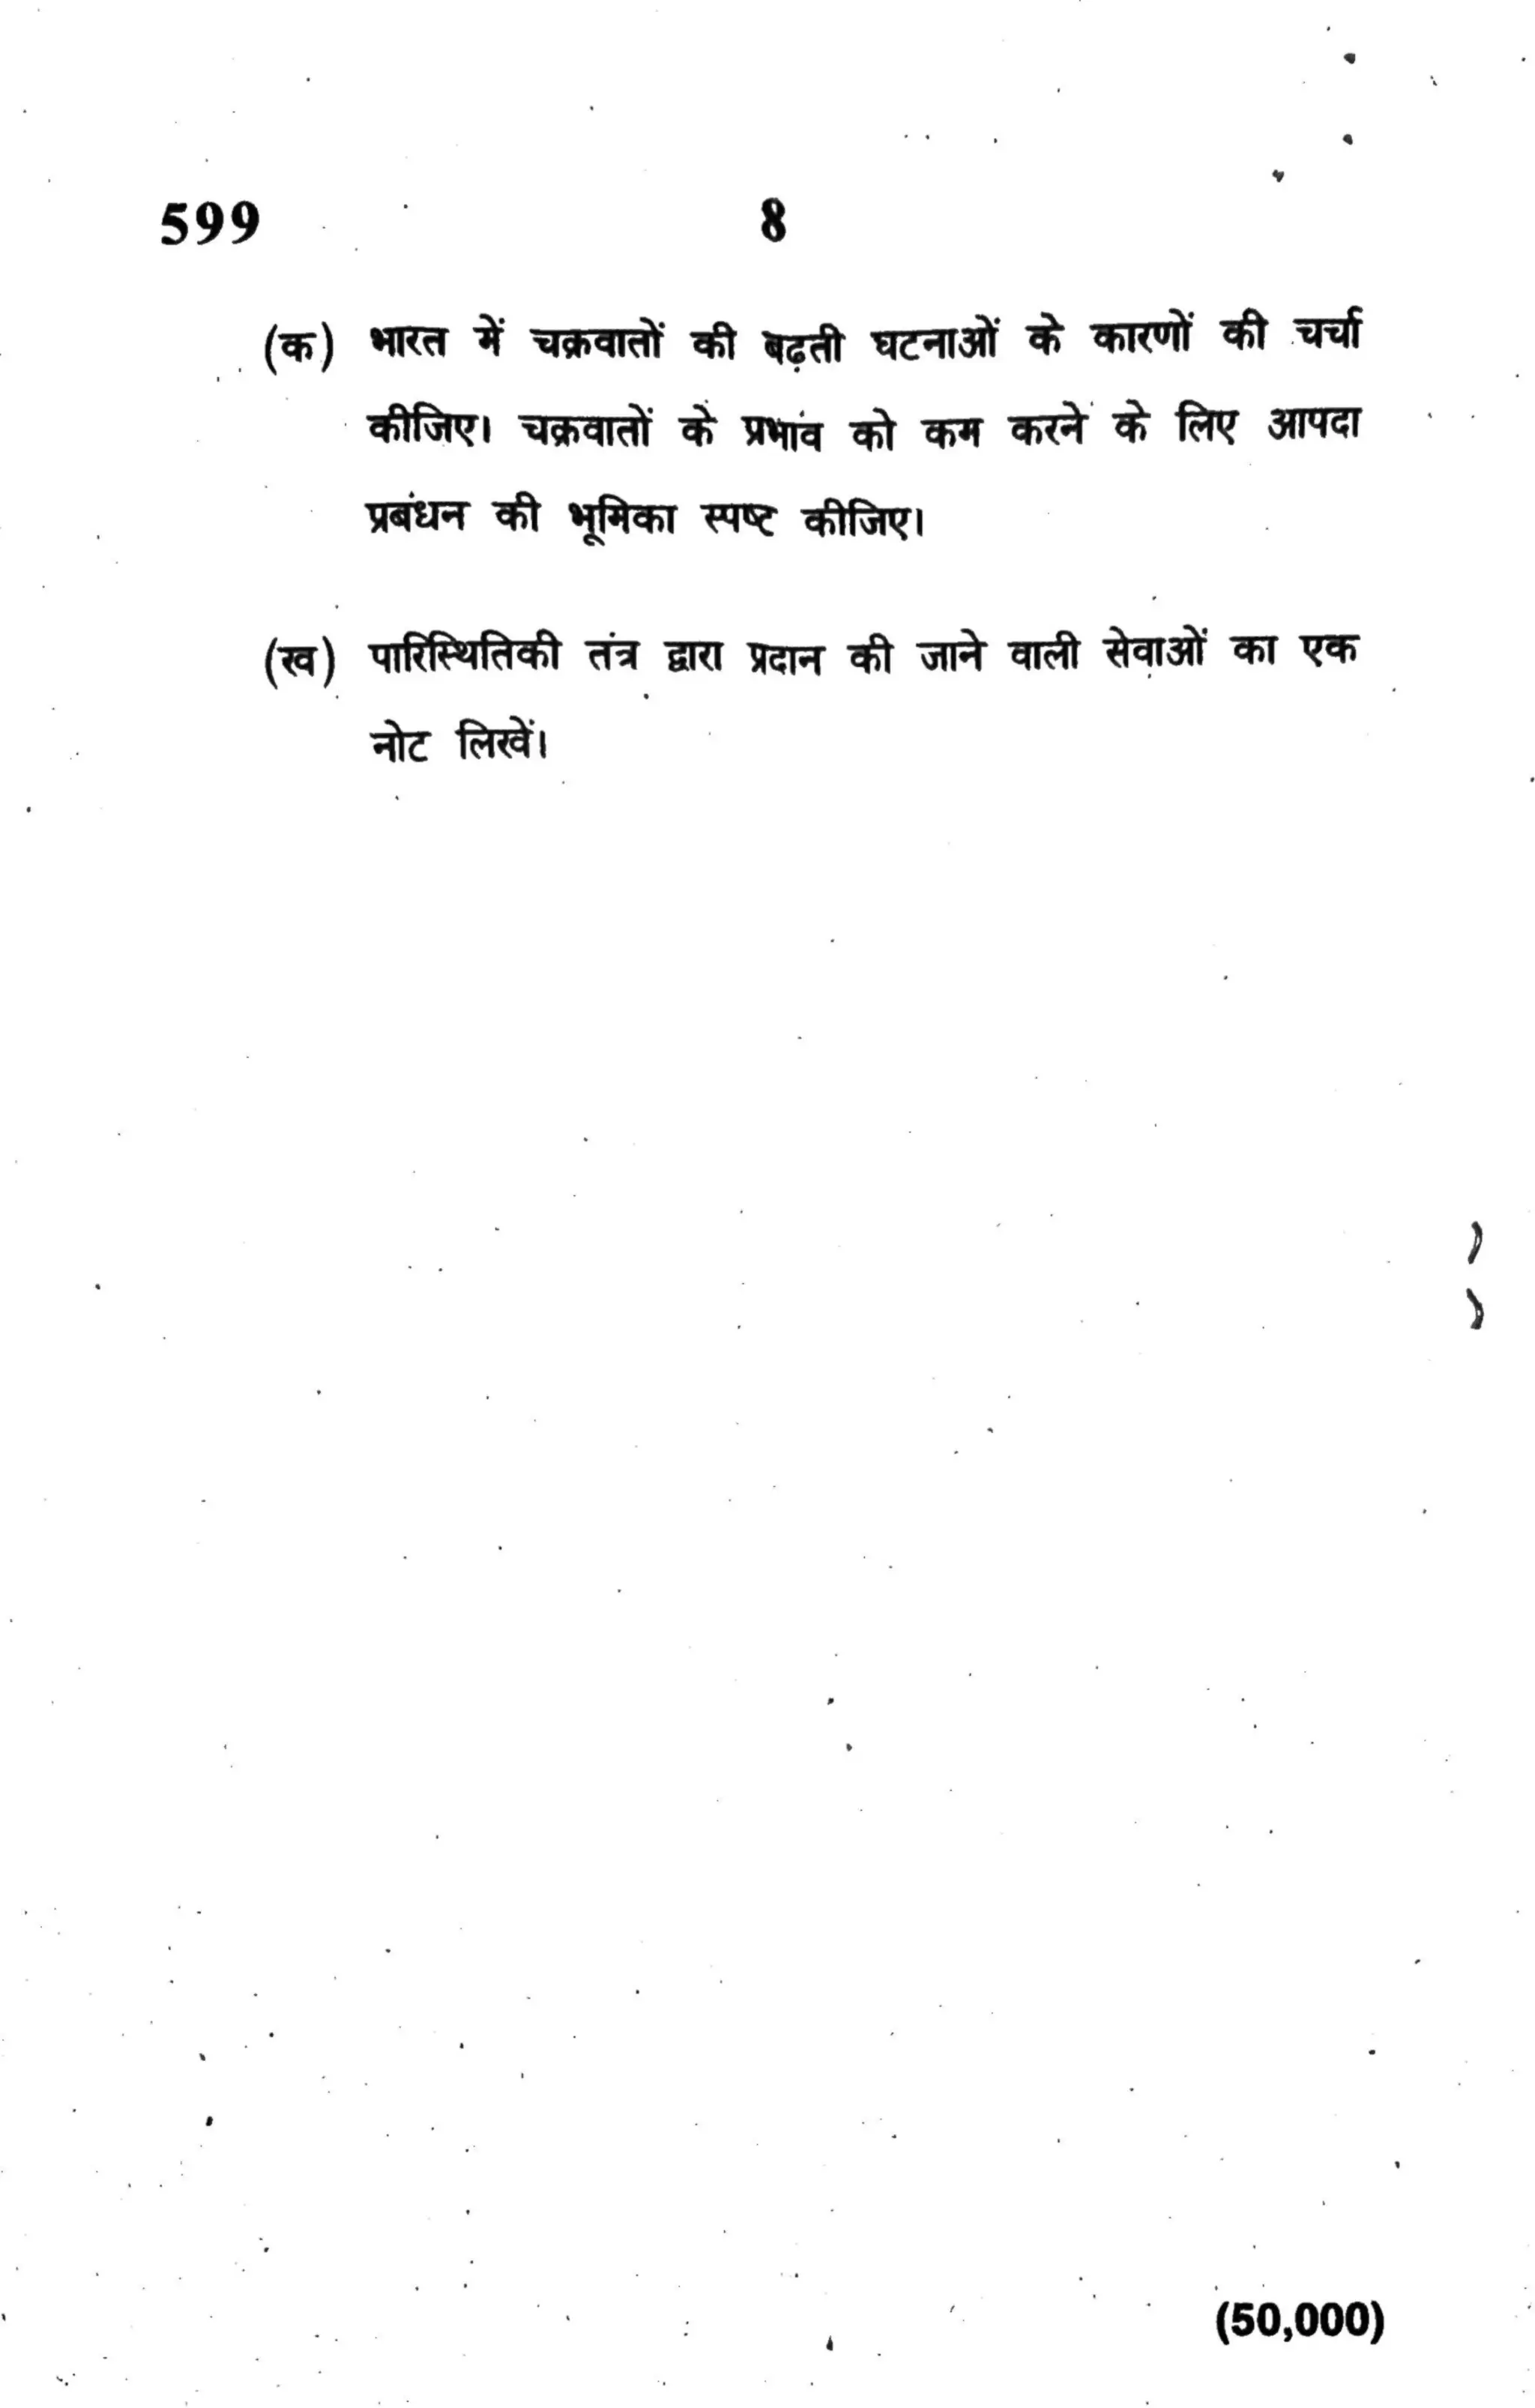 599 8
(क) भारत में चक्रवातों की बढ़ती घटनाओं के कारणों की चर्चा
कीजिए। चक्रवातों के प्रभाव को कम करने के लिए आपदा
प्रबंधन की भूमिका स्पष्ट कीजिए।
(ख) पारिस्थितिकी तंत्र द्वारा प्रदान की जाने वाली सेवाओं का एक
नोट लिखें।
(50,000)